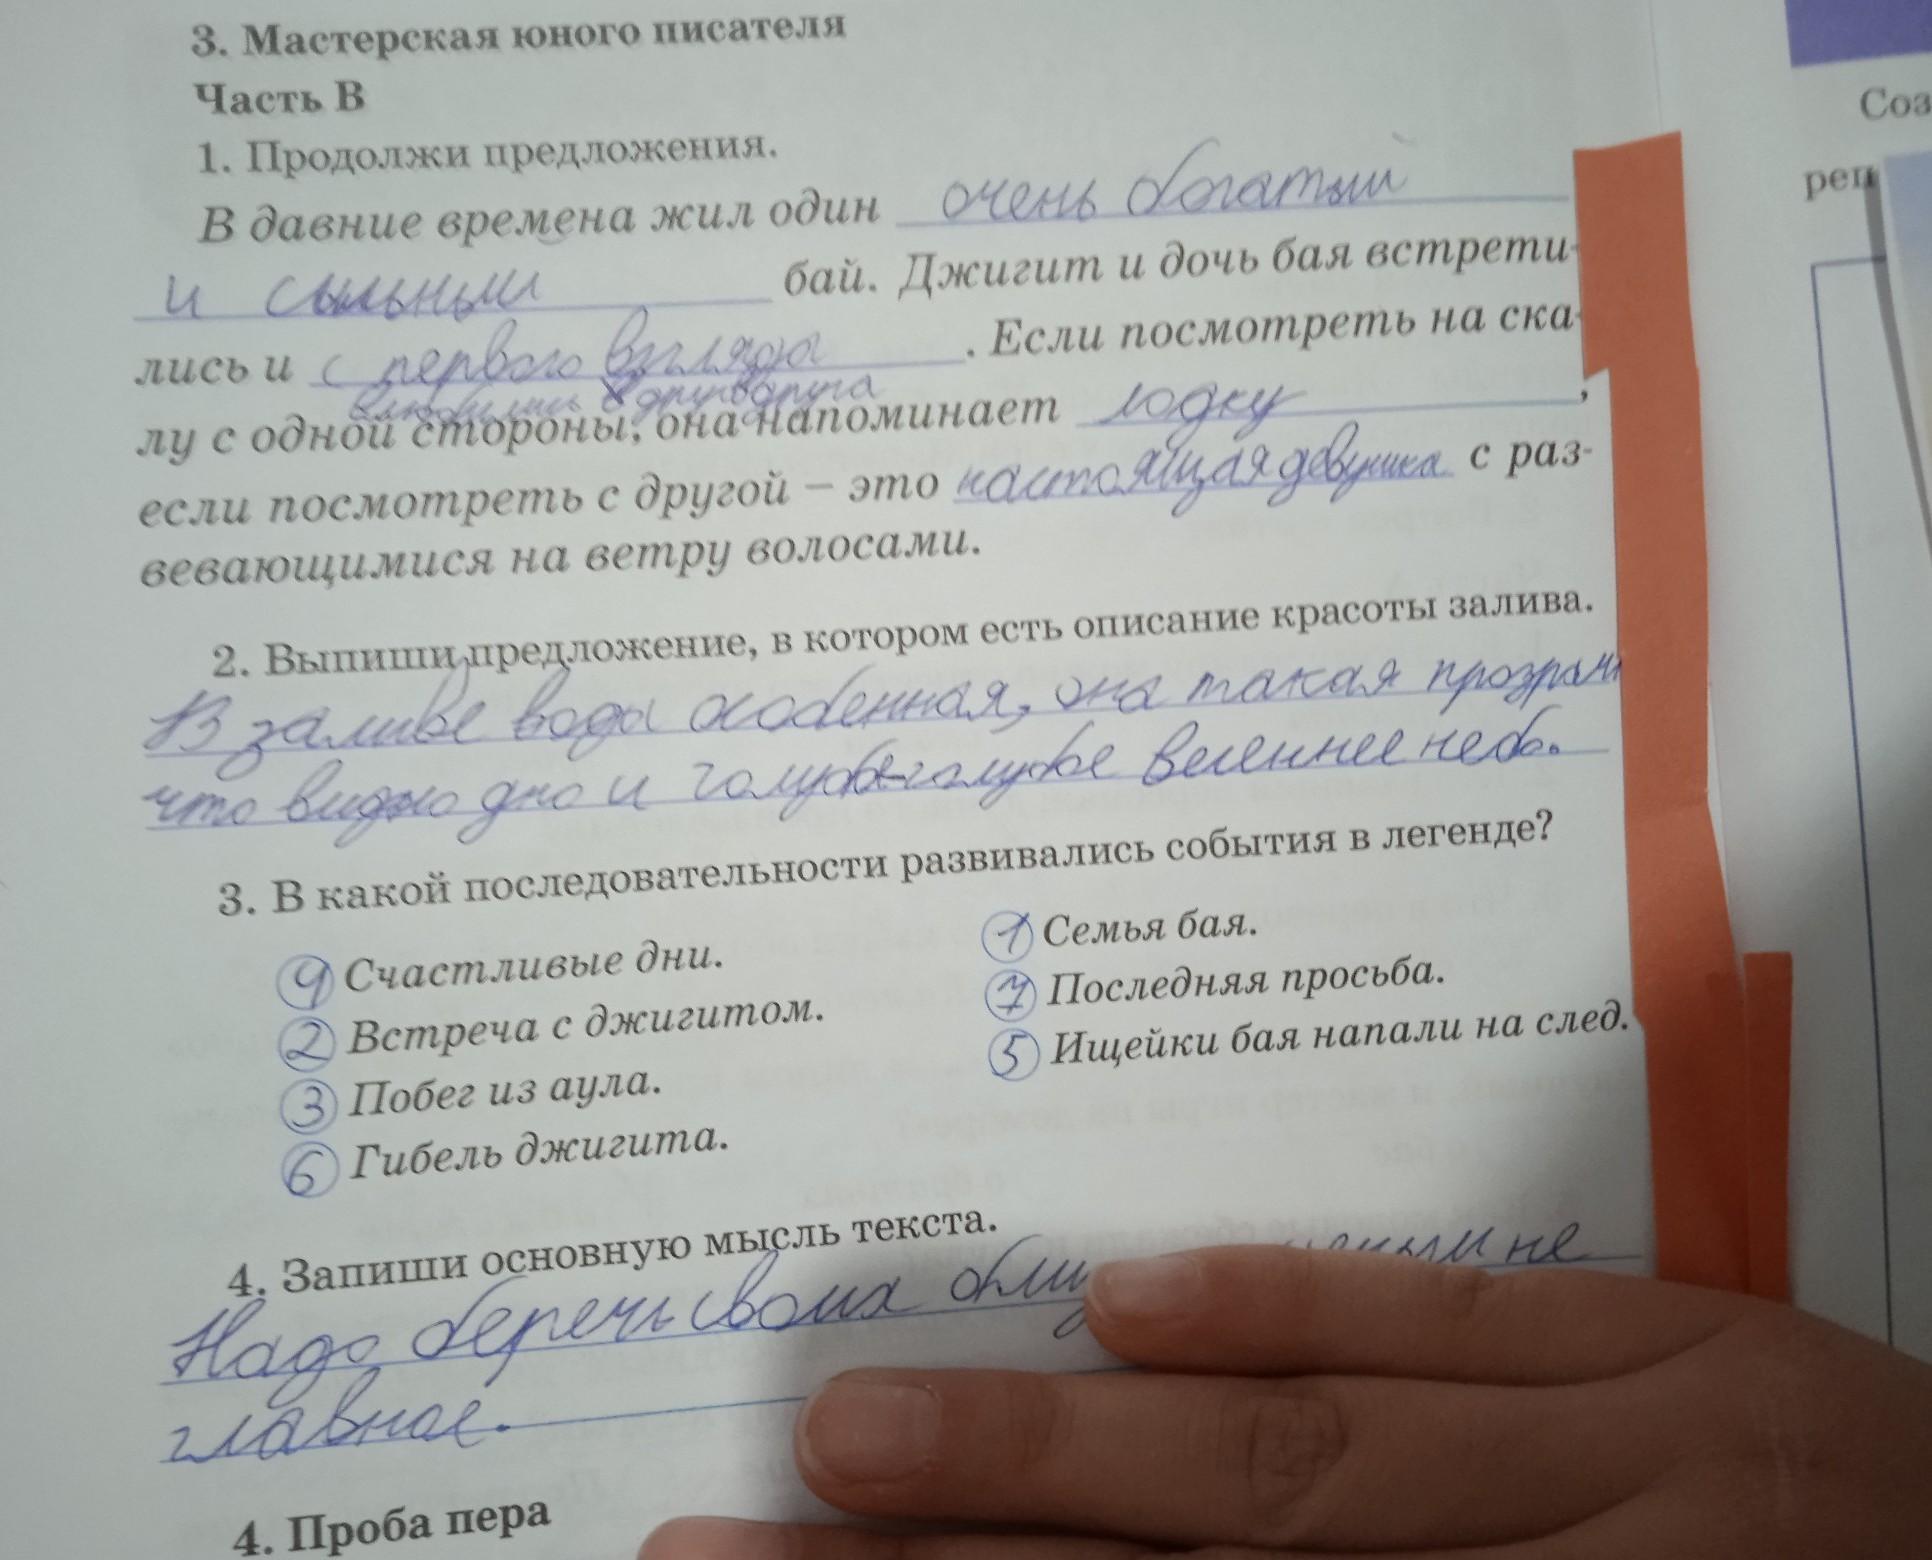 3. Мастерская юного писателя
Часть В
1. Продолжи предложения.
В давние времена жил один очень богатый
и сыльный бай. Джигит и дочь бая встрети-
лись и с первого взгляда . Если посмотреть на ска-
влюбились в друг друга
лу с одной стороны, она напоминает лодку ,
если посмотреть с другой – это настоящая девушка с раз-
вевающимися на ветру волосами.
2. Выпиши предложение, в котором есть описание красоты залива.
В заливе вода особенная, она такая прозрачн
что видно дно и голубое-голубое весеннее небо.
3. В какой последовательности развивались события в легенде?
4 Счастливые дни.
2 Встреча с джигитом.
3 Побег из аула.
6 Гибель джигита.
1 Семья бая.
7 Последняя просьба.
5 Ищейки бая напали на след.
4. Запиши основную мысль текста.
Надо беречь своих не
главное.
4. Проба пера
Соз
реп